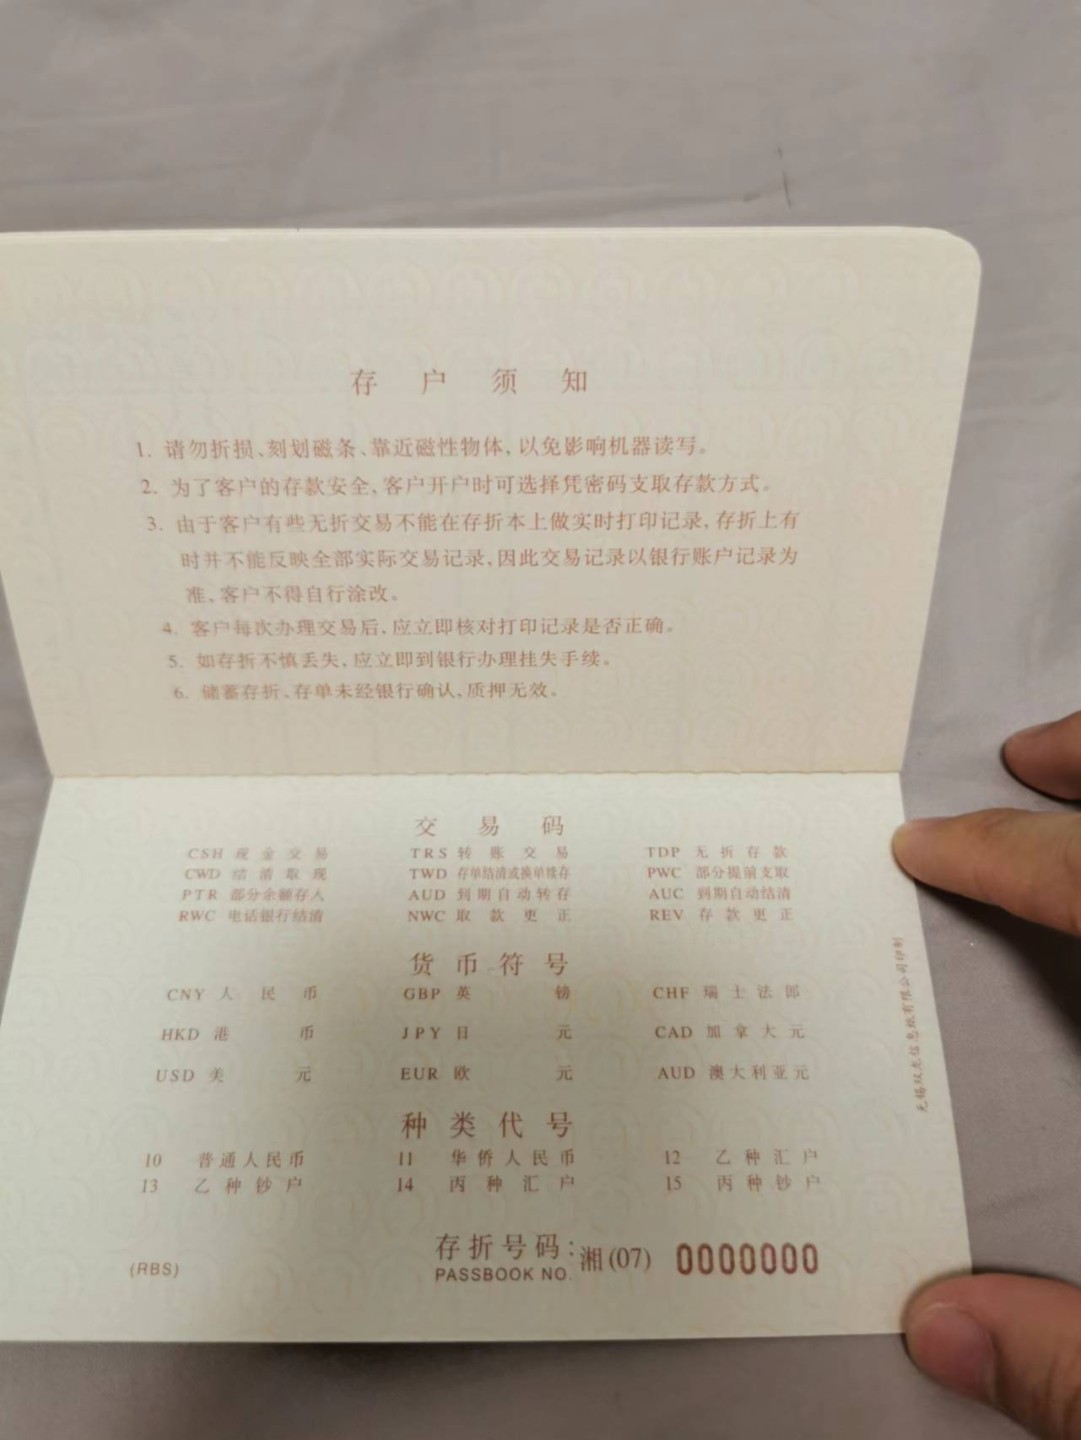 存户须知
1. 请勿折损、刻划磁条、靠近磁性物体，以免影响机器读写。
2. 为了客户的存款安全，客户开户时可选择凭密码支取存款方式。
3. 由于客户有些无折交易不能在存折本上做实时打印记录，存折上有
时并不能反映全部实际交易记录，因此交易记录以银行账户记录为
准，客户不得自行涂改。
4. 客户每次办理交易后，应立即核对打印记录是否正确。
5. 如存折不慎丢失，应立即到银行办理挂失手续。
6. 储蓄存折、存单未经银行确认，质押无效。
交易码
CSH 现金交易 TRS 转账交易 TDP 无折存款
CWD 结清取现 TWD 存单结清或换单续存 PWC 部分提前支取
PTR 部分余额存入 AUD 到期自动转存 AUC 到期自动结清
RWC 电话银行结清 NWC 取款更正 REV 存款更正
货币符号
CNY 人民币 GBP 英镑 CHF 瑞士法郎
HKD 港币 JPY 日元 CAD 加拿大元
USD 美元 EUR 欧元 AUD 澳大利亚元
种类代号
10 普通人民币 11 华侨人民币 12 乙种汇户
13 乙种钞户 14 丙种汇户 15 丙种钞户
存折号码：湘(07) 0000000
PASSBOOK NO.
(RBS)
无锡双龙信息纸有限公司印制